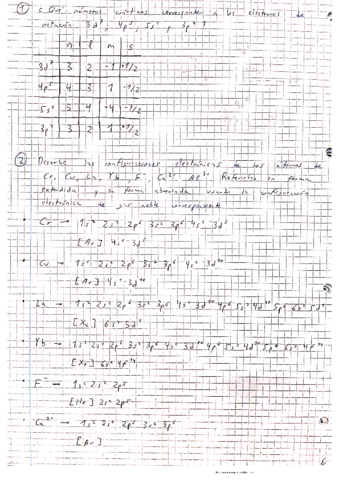 ① ¿ Qué números cuánticos corresponde a los electrones de
notación 3d⁷, 4p⁵, 5s¹, y 3p⁴ ?
n l m s
3d⁷ 3 2 -1 +1/2
4p⁵ 4 3 1 -1/2
5s¹ 5 4 -4 -1/2
3p⁴ 3 2 1 +1/2
② Describe las configuraciones electrónicas de los átomos de
Cr, Cu, La, Yb, F⁻, Ca²⁺, Al³⁺. en forma
extendida y en forma abreviada usando la configuración
electrónica de gas noble correspondiente
Cr → 1s² 2s² 2p⁶ 3s² 3p⁶ 4s¹ 3d⁵
[Ar] 4s¹ 3d⁵
Cu → 1s² 2s² 2p⁶ 3s² 3p⁶ 4s¹ 3d¹⁰
[Ar] 4s¹ 3d¹⁰
La → 1s² 2s² 2p⁶ 3s² 3p⁶ 4s² 3d¹⁰ 4p⁶ 5s² 4d¹⁰ 5p⁶ 6s² 5d¹
[Xe] 6s² 5d¹
Yb → 1s² 2s² 2p⁶ 3s² 3p⁶ 4s² 3d¹⁰ 4p⁶ 5s² 4d¹⁰ 5p⁶ 6s² 4f¹⁴
[Xe] 6s² 4f¹⁴
F⁻ → 1s² 2s² 2p⁶
[He] 2s² 2p⁶
Ca²⁺ → 1s² 2s² 2p⁶ 3s² 3p⁶
[Ar]